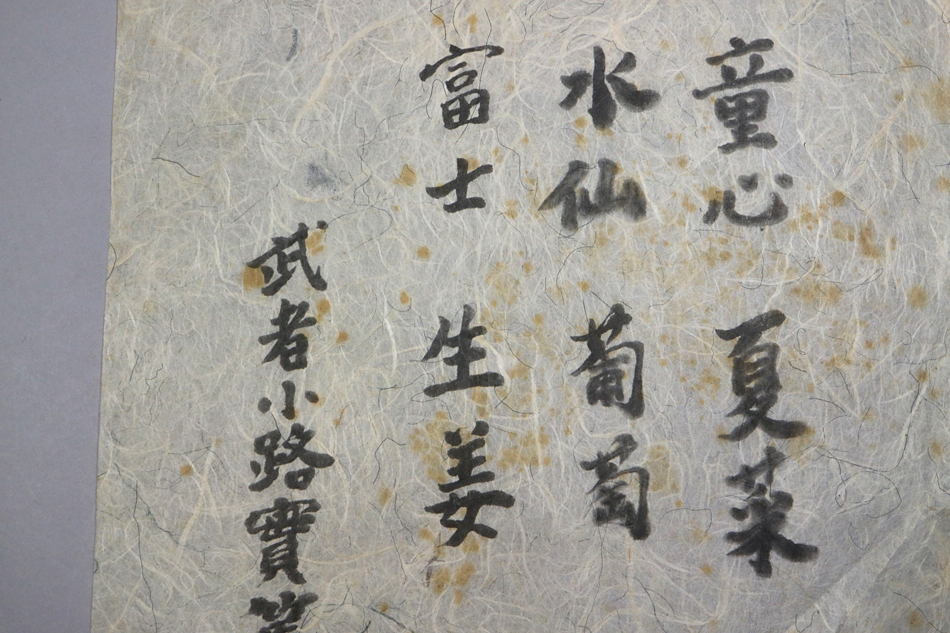 童心 夏菜
水仙 葡萄
富士 生姜
武者小路實篤